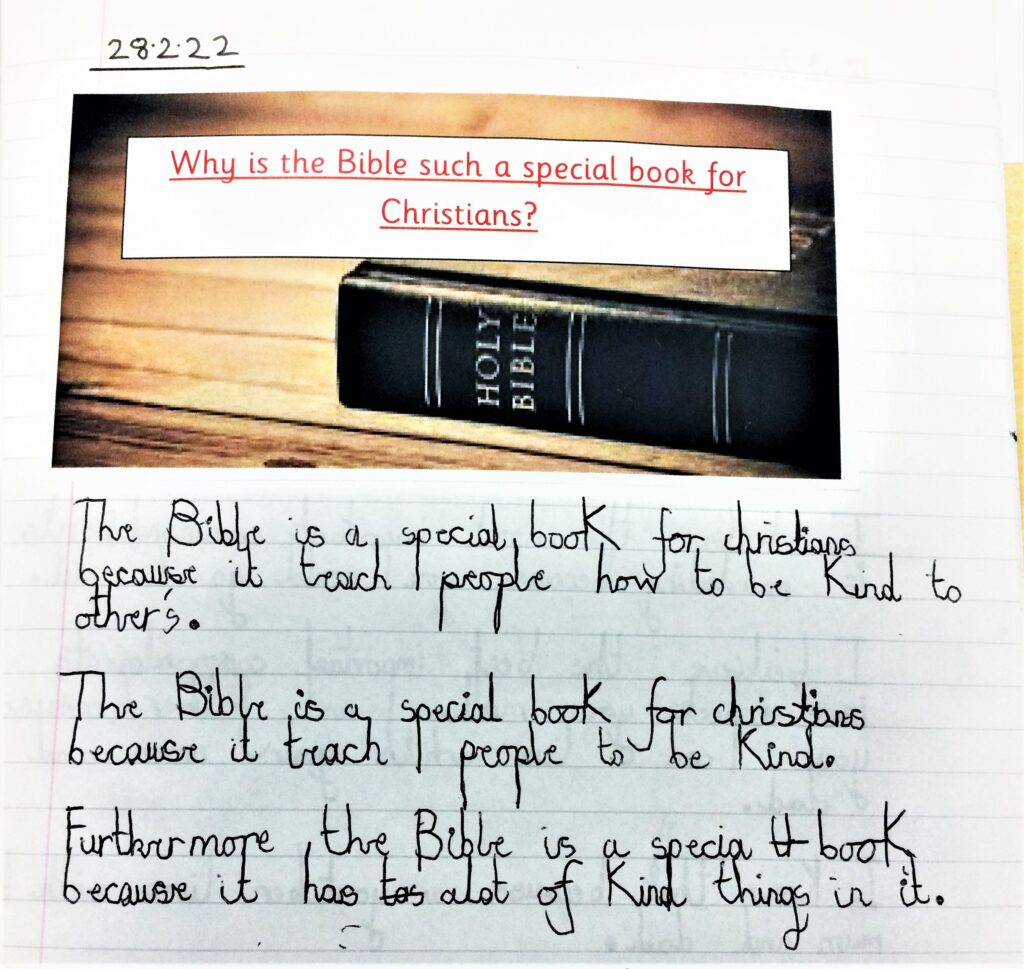 28.2.22
Why is the Bible such a special book for
Christians?
HOLY
BIBLE
The Bible is a special book for christians
because it teach people how to be Kind to
other's.
The Bible is a special book for christians
because it teach people to be Kind.
Furthermore, the Bible is a specia book
because it has alot of Kind things in it.